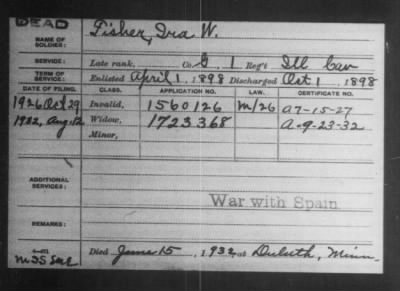 DEAD
NAME OF SOLDIER: Fisher, Ira W.
SERVICE: Late rank, Co. G 1 Reg't Ill Cav
TERM OF SERVICE: Enlisted April 1, 1898 Discharged Oct 1, 1898
DATE OF FILING. CLASS. APPLICATION NO. LAW. CERTIFICATE NO.
1926 Oct 29 Invalid, 1560126 M/26 A-7-15-27
1932, Aug 12 Widow, 1723368 A-9-23-32
Minor,
ADDITIONAL SERVICES:
War with Spain
REMARKS:
Died June 15, 1932 at Duluth, Minn-